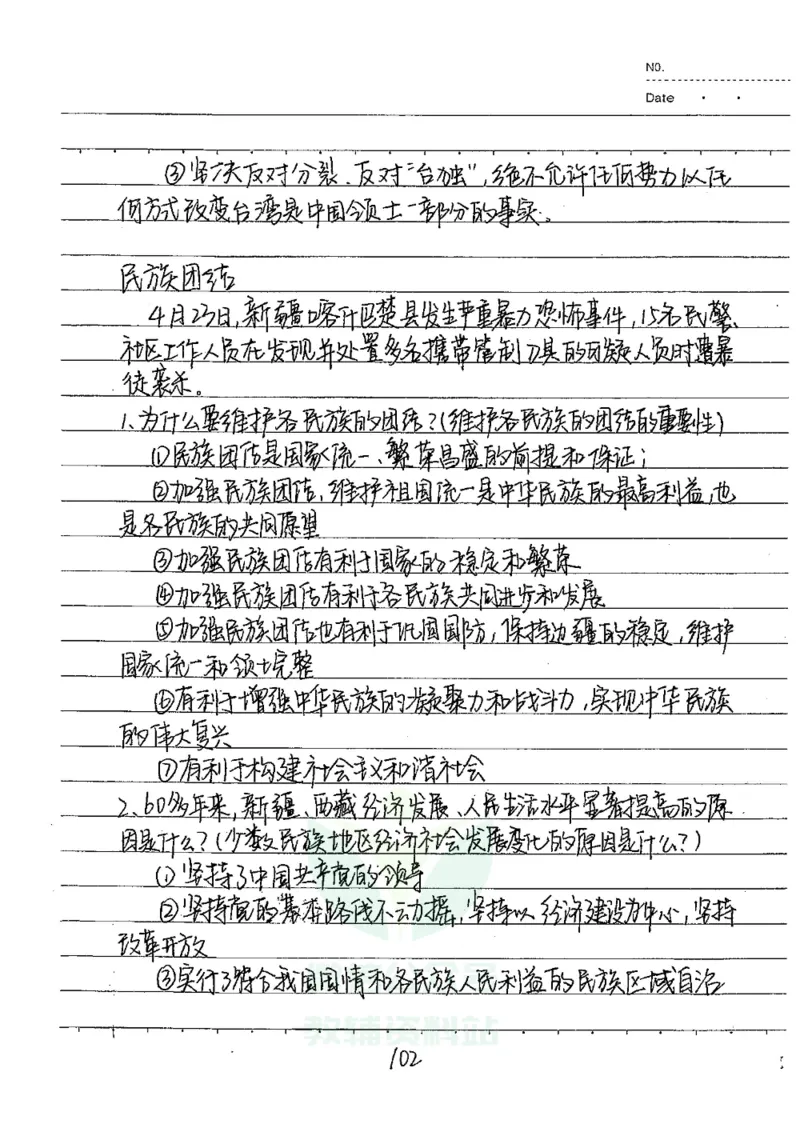 NO.
Date
③坚决反对分裂、反对“台独”,绝不允许任何势力以任
何方式改变台湾是中国领土一部分的事实。
民族团结
4月23日,新疆喀什巴楚县发生严重暴力恐怖事件,15名民警、
社区工作人员在发现并处置多名携带管制刀具的可疑人员时遭暴
徒袭杀。
1、为什么要维护各民族的团结?(维护各民族的团结的重要性)
①民族团结是国家统一、繁荣昌盛的前提和保证;
②加强民族团结,维护祖国统一是中华民族的最高利益,也
是各民族的共同愿望
③加强民族团结有利于国家的稳定和繁荣
④加强民族团结有利于各民族共同进步和发展
⑤加强民族团结也有利于巩固国防,保持边疆的稳定,维护
国家统一和领土完整
⑥有利于增强中华民族的凝聚力和战斗力,实现中华民族
的伟大复兴
⑦有利于构建社会主义和谐社会
2、60多年来,新疆、西藏经济发展、人民生活水平显著提高的原
因是什么?(少数民族地区经济社会发展变化的原因是什么?)
①坚持了中国共产党的领导
②坚持党的基本路线不动摇,坚持以经济建设为中心,坚持
改革开放
③实行了符合我国国情和各民族人民利益的民族区域自治
教辅资料站
102